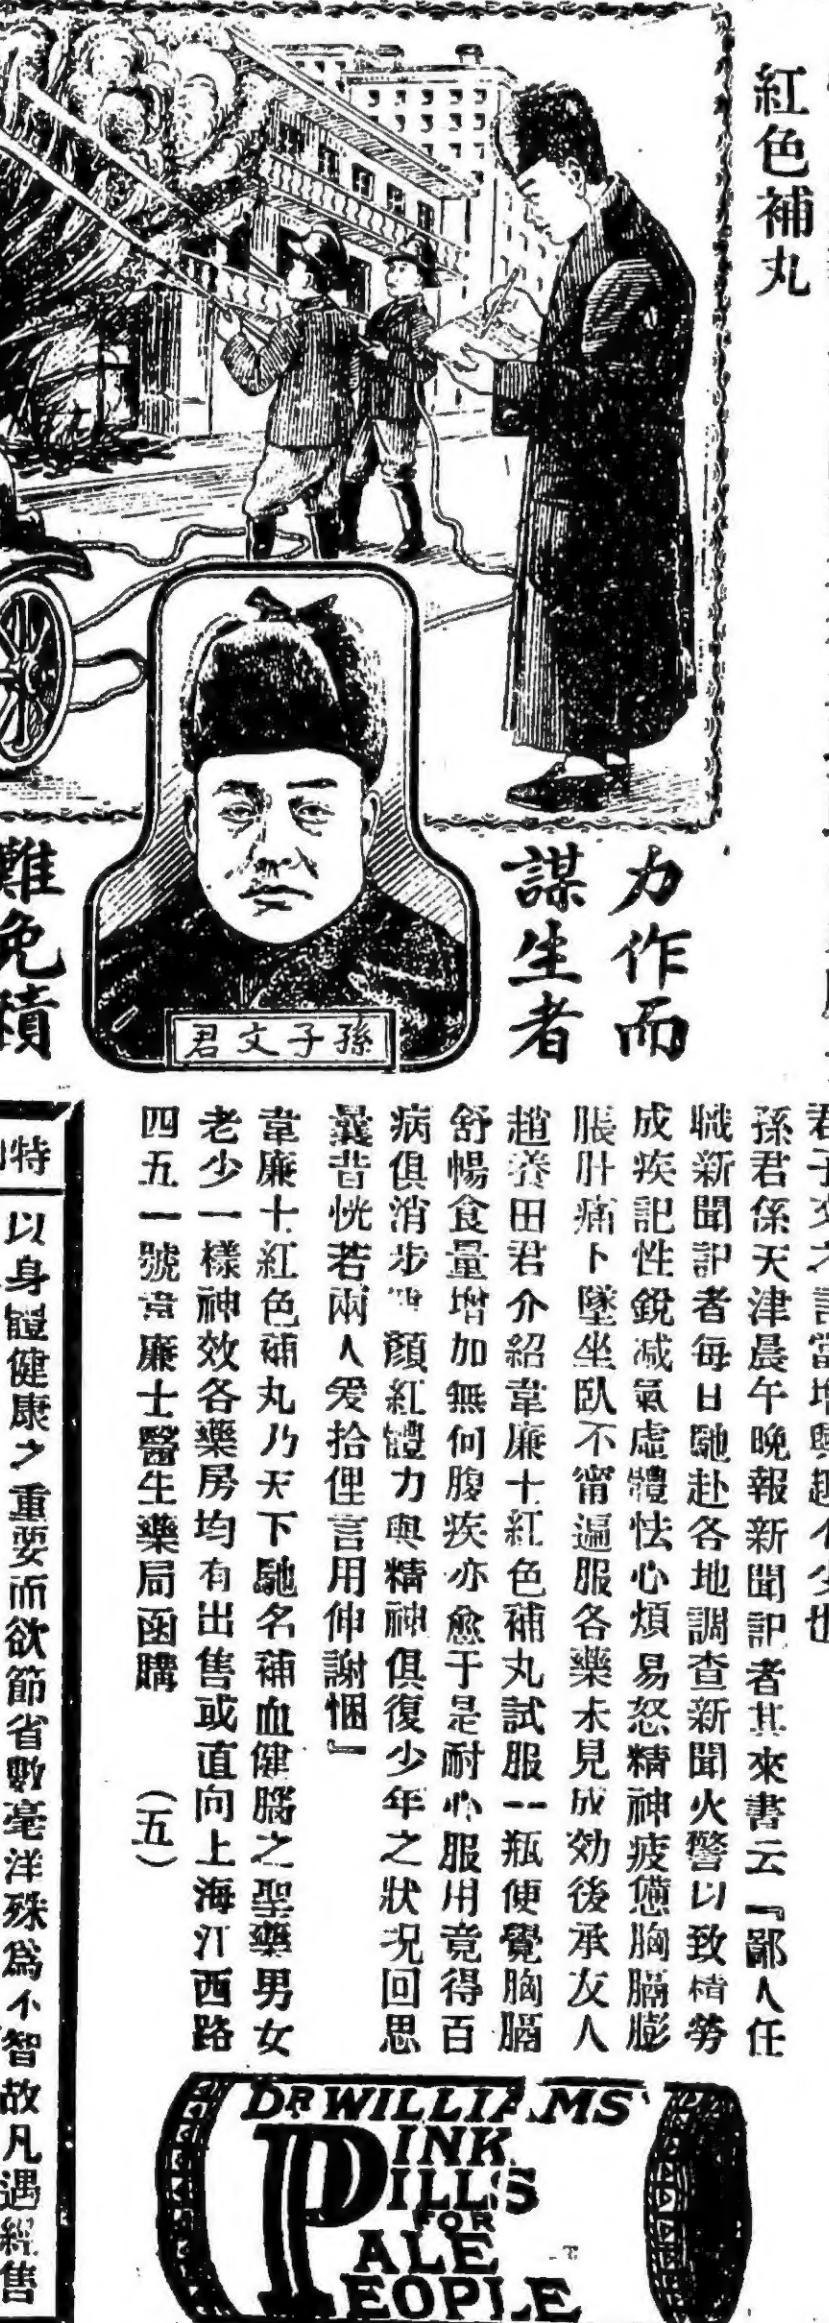 紅色補丸
力作而
謀生者
難免積
孫子文君
孫君係天津晨午晚報新聞記者其來書云『鄙人任
職新聞記者每日馳赴各地調查新聞火警以致積勞
成疾記性銳减氣虛體怯心煩易怒精神疲憊胸膈膨
脹肚痛下墜坐臥不甯遍服各藥未見成効後承友人
趙養田君介紹韋廉士紅色補丸試服一瓶便覺胸膈
舒暢食量增加無何腹疾亦愈于是耐心服用竟得百
病俱消步 顏紅體力與精神俱復少年之狀况回思
曩昔恍若兩人爰拾俚言用伸謝悃』
韋廉士紅色補丸乃天下馳名補血健腦之聖藥男女
老少一樣神效各藥房均有出售或直向上海江西路
四五一號韋廉士醫生藥局函購 （五）
特
以身體健康之重要而欲節省數毫洋殊爲不智故凡遇經售
DR WILLIAMS'
PINK
PILLS
FOR
PALE
PEOPLE